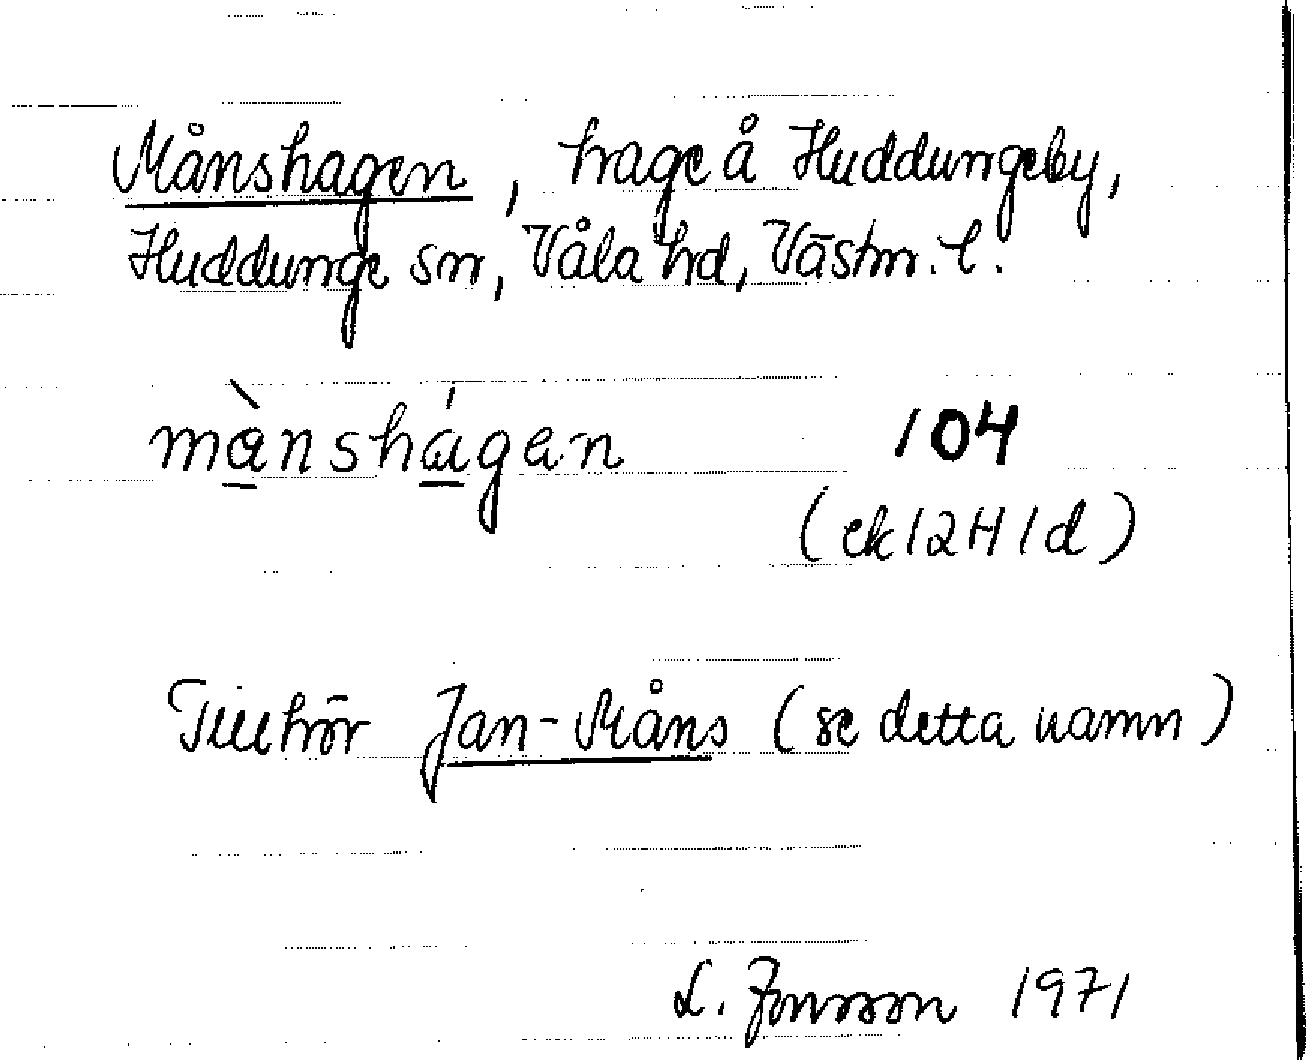 Månshagen, hage å Huddungeby,
Huddunge sn, Våla hd, Västm. l.
mà̱nshá̱gen 104
(ek 12H1d)
Tillhör Jan-Måns (se detta namn)
L. Jonsson 1971